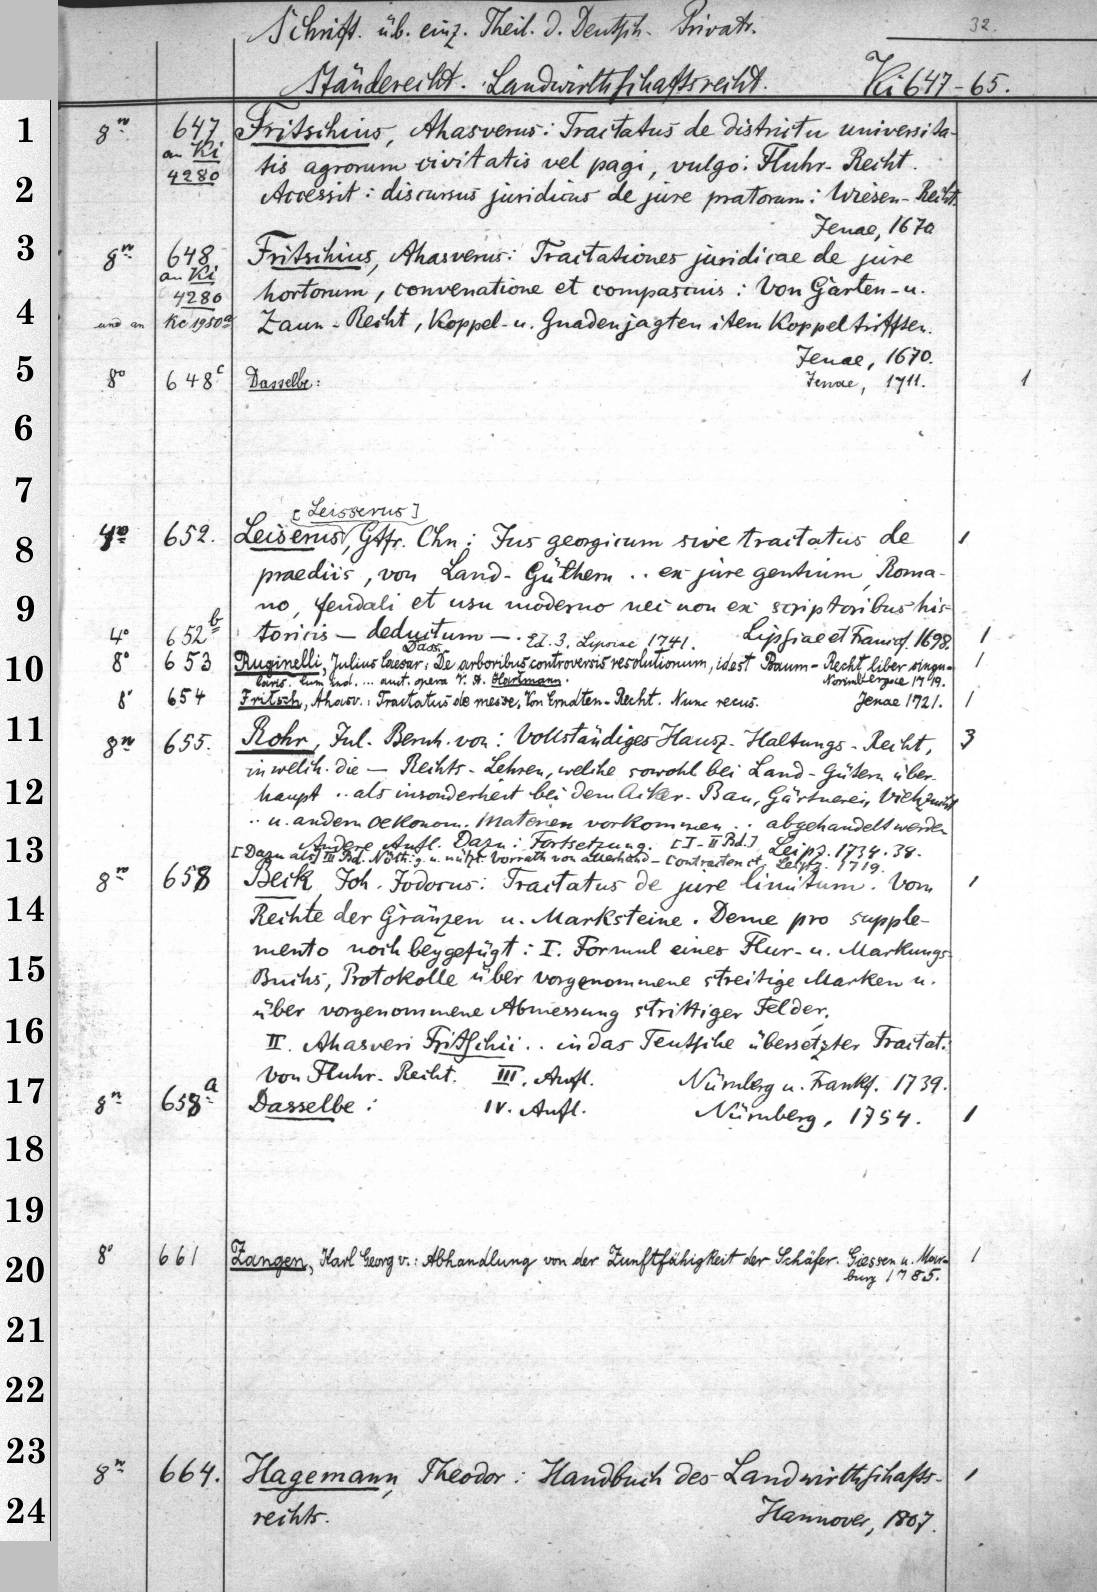 Schrift. üb. einz. Theil. d. Deutsch. Privatr. 32.
Ständerecht. Landwirthschaftsrecht. Ki 647-65.
1 8º 647 Fritschius, Ahasverus: Tractatus de districtu universita-
an Ki tis agrorum civitatis vel pagi, vulgo: Fluhr-Recht.
4280
2 Accessit: discursus juridicus de jure pratorum: Wiesen-Recht.
Jenae, 1670
3 8º 648 Fritschius, Ahasverus: Tractationes juridicae de jure
an Ki
4280 hortorum, convenatione et compascuis: Von Gärten- u.
4 und an Kc 1950a Zaun-Recht, Koppel- u. Gnadenjagten item Koppeltrifften.
Jenae, 1670.
5 8º 648c Dasselbe: Jenae, 1711. 1
6
7
[Leisserus]
8 4º 652. Leiserus, Gttfr. Chn: Jus georgicum sive tractatus de 1
praediis, von Land-Güthern .. ex jure gentium, Roma-
9 no, feudali et usu moderno nec non ex scriptoribus his-
toricis — deductum —. Lipsiae et Francof. 1698.
4º 652b Dass. Ed. 3. Lipsiae 1741. 1
10 8º 653 Ruginelli, Julius Caesar: De arboribus controversis resolutionum, id est Baum-Recht liber singu- 1
laris. Cum ind. ... auct. opera V. A. Hartmann. Norimbergae 1719.
8º 654 Fritsch, Ahasv.: Tractatus de messe, Von Erndten-Recht. Nunc recus. Jenae 1721. 1
11 8º 655. Rohr, Jul. Bernh. von: Vollständiges Hausz-Haltungs-Recht, 3
in welch. die — Rechts-Lehren, welche sowohl bei Land-Gütern über-
12 haupt .. als insonderheit bei dem Acker-Bau, Gärtnerei, Viehzucht
.. u. andern oekonom. Materien vorkommen .. abgehandelt werden
13 Andere Aufl. Dazu: Fortsetzung. [I-II Bd.] Leipz. 1734. 38.
[Dazu als] III Bd. Nöth. u. nützl. Vorrath von allerhand — Contracten et. Leipz. 1719.
8º 658 Beck, Joh. Jodocus: Tractatus de jure limitum. Vom 1
14 Rechte der Gränzen u. Marksteine. Deme pro supple-
mento noch beygefügt: I. Formul eines Flur- u. Markungs-
15 Buchs, Protokolle über vorgenommene streitige Marken u.
über vorgenommene Abmessung strittiger Felder.
16 II. Ahasveri Fritschii .. in das Teutsche übersetzter Tractat.
von Fluhr-Recht. III. Aufl. Nürnberg u. Frankf. 1739.
17 8º 658a Dasselbe: IV. Aufl. Nürnberg, 1754. 1
18
19
20 8º 661 Zangen, Karl Georg v.: Abhandlung von der Zunftfähigkeit der Schäfer. Giessen u. Mar- 1
burg 1785.
21
22
23 8º 664. Hagemann, Theodor: Handbuch des Landwirthschafts- 1
24 rechts. Hannover, 1807.